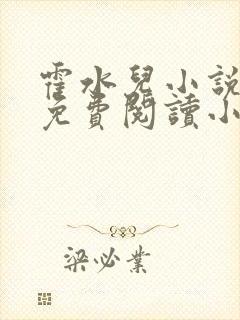 霍水兒小說
免費閱讀小
梁必業